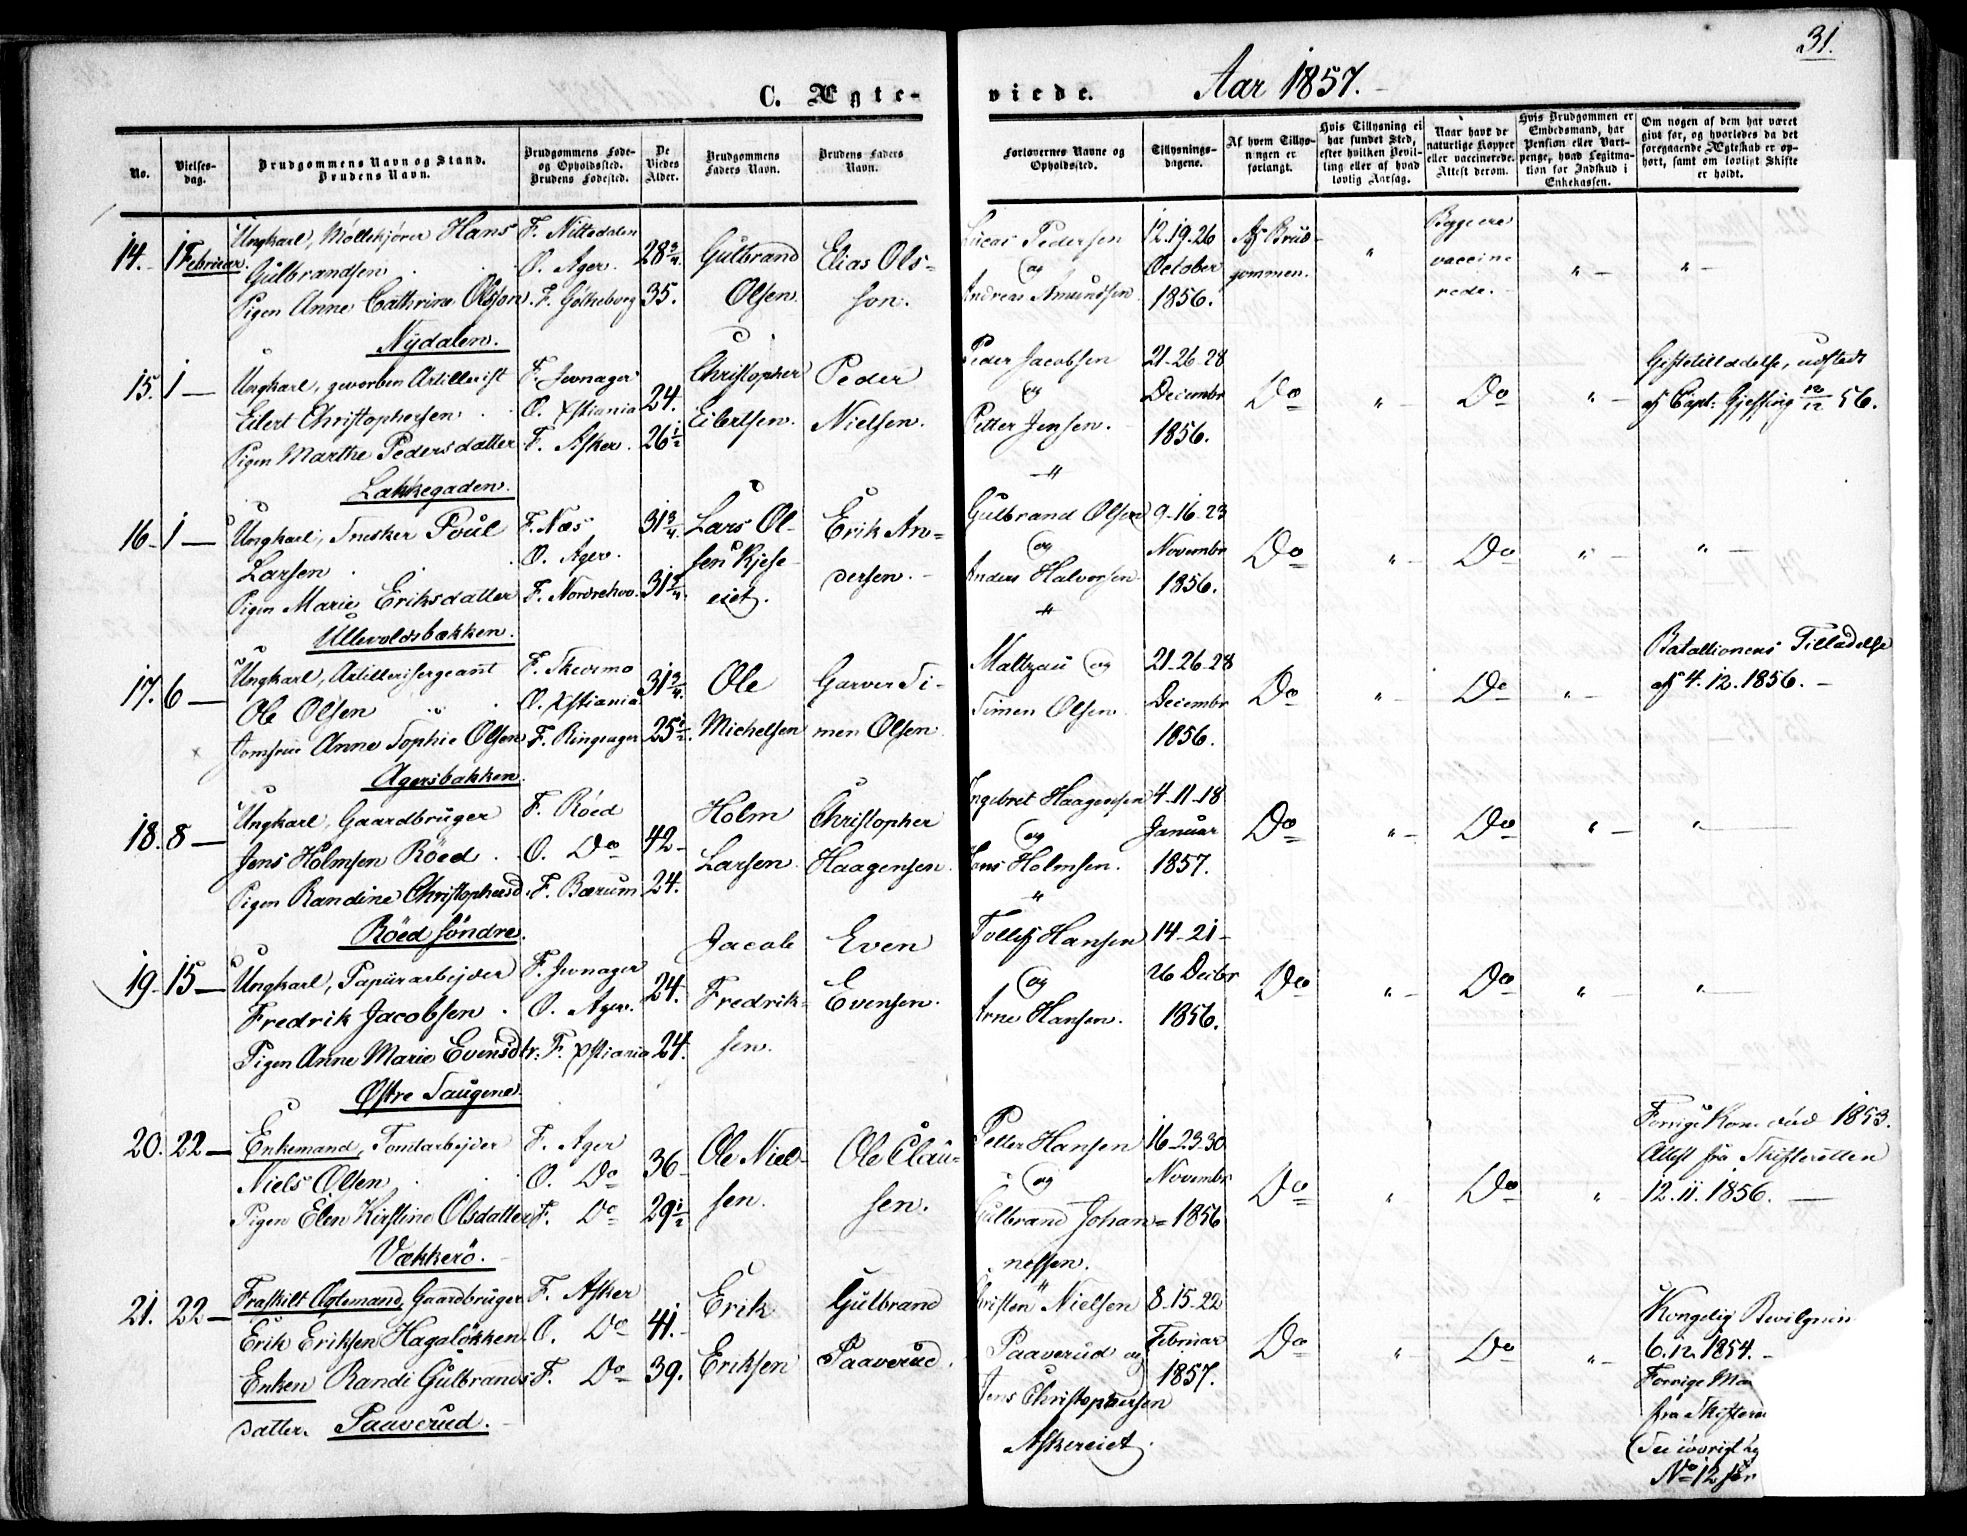 31.
C. Ægte-
viede.
Aar 1857.
No.
Vielses-
dag.
Brudgommens Navn og Stand.
Brudens Navn.
Brudgommens Føde-
og Opholdssted.
Brudens Fødested.
De
Viedes
Alder.
Brudgommens
Faders Navn.
Brudens Faders
Navn.
Forlovernes Navne og
Opholdssted.
Tillysnings-
dagene.
Af hvem Tillys-
ningen er
forlangt.
Hvis Tillysning ei
har fundet Sted,
efter hvilken Bevil-
ling eller af hvad
lovlig Aarsag.
Naar havt de
naturlige Kopper
eller vaccinerede.
Attest derom.
Hvis Brudgommen er
Embedsmand, har
Pension eller Vart-
penge, hvad Legitima-
tion for Indskud i
Enkekassen.
Om nogen af dem har været
gift før, og hvorledes da det
foregaaende Ægteskab er op-
hørt, samt om lovligt Skifte
er holdt.
14. 1 Februar. Ungkarl, Møllekjører Hans F. Nittedalen 28¾ Gulbrand Elias Ols= Lucas Pedersen 12.19.26 Af Brud- " Begge ere " "
Gulbrandsen O. Ager. Olsen son. og October gommen. vaccine
Pigen Anne Cathrine Olsson. F. Gøtheborg 35. Andreas Amundsen 1856. rede.
Nydalen.
15. 1 — Ungkarl, geworben Artillerist F. Jevnager 24. Christopher Peder Peder Jacobsen 21-26-28 Do " Do " Giftetilladelse, udstedt
Eilert Christophersen O. Xstiania Eilertsen. Nielsen. og Decembr af Capt: Gjessing 12/12 56.
Pigen Marthe Pedersdatter F. Asker. 26½ Petter Jensen. 1856.
Lakkegaden.
16. 1 — Ungkarl, Snedker Poul F. Næs 31¾ Lars Ol- Erik An= Gulbrand Olsen 9-16-23 Do " Do " "
Larsen O. Ager. sen Kjese- dersen. og Novembr
Pigen Marie Eriksdatter F. Norderhov. 31¾ eiet. Anders Halvorsen 1856.
Ullevoldsbakken.
17. 6 — Ungkarl, Artillerisergeant F. Skedsmo 31¾ Ole Garver Si- Maltzau og 21-26-28 Do " Do " Batallionens Tilladelse
Ole Olsen O. Xstiania Michelsen men Olsen Simen Olsen Decembr af 4.12.1856.
Jomfrue Anne Sophie Olsen F. Ringsager 25½. 1856.
Agersbakken.
18. 8 — Ungkarl, Gaardbruger F. Röed 42 Holm Christopher Ingebret Haagensen 4-11-18 Do " Do " "
Jens Holmsen Röed. O. Do Larsen Haagensen. og Januar
Pigen Randine Christophersd. F. Bærum 24. Hans Holmsen. 1857.
Röed søndre.
19. 15 — Ungkarl, Papirarbejder F. Jevnager 24. Jacob Even Tollef Hansen 14-21- Do " Do " "
Fredrik Jacobsen. O. Ager. Fredrik- Evensen. og 26 Decbr
Pigen Anne Marie Evensdtr. F. Xstiania 24. sen. Arne Hansen. 1856.
Østre Saugene.
20. 22 — Enkemand, Tomtarbejder F. Ager 36 Ole Niel- Ole Clau- Petter Hansen 16-23-30 Do " Do " Forrige Kone död 1853.
Niels Olsen O. Do sen. sen. og Novembr Attest fra Skifteretten
Pigen Elen Kirstine Olsdatter F. Do 29½ Gulbrand Johan= 1856 12.11.1856.
Vækkerö. nessen.
21. 22 — Fraskilt Ægtemand, Gaardbruger F. Asker 41. Erik Gulbrand Christen Nielsen 8-15-22 Do " Do " Kongelig Bevilgnin
Erik Eriksen Hagaløkken O. Do Eriksen Paaverud. Paaverud og Februar 6.12.1854.
Enken Randi Gulbrands- F. Do 39. Jens Christophersen 1857. Forrige Ma
datter. Paaverud. Askereiet. fra Skiftere
No 12 för